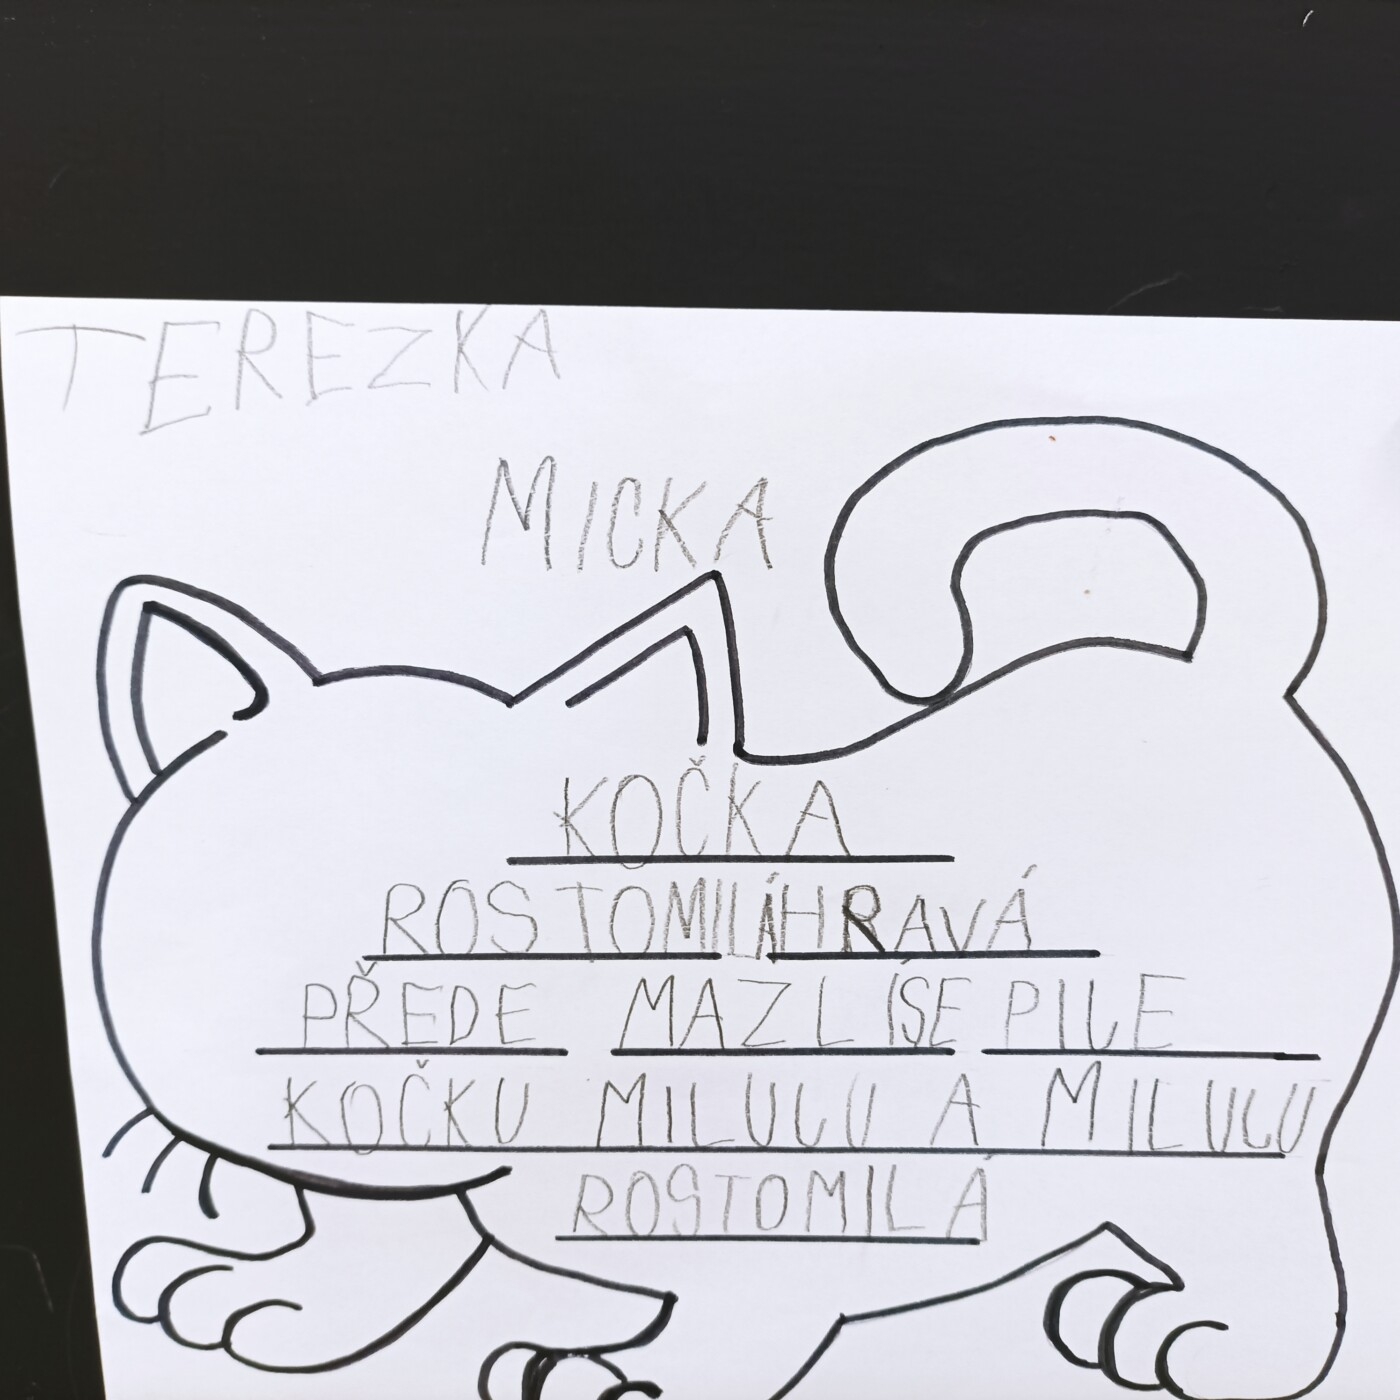 TEREZKA
MICKA
KOČKA
ROSTOMILÁ HRAVÁ
PŘEDE MAZLÍ SE PIJE
KOČKU MILUJU A MILUJU
ROSTOMILÁ